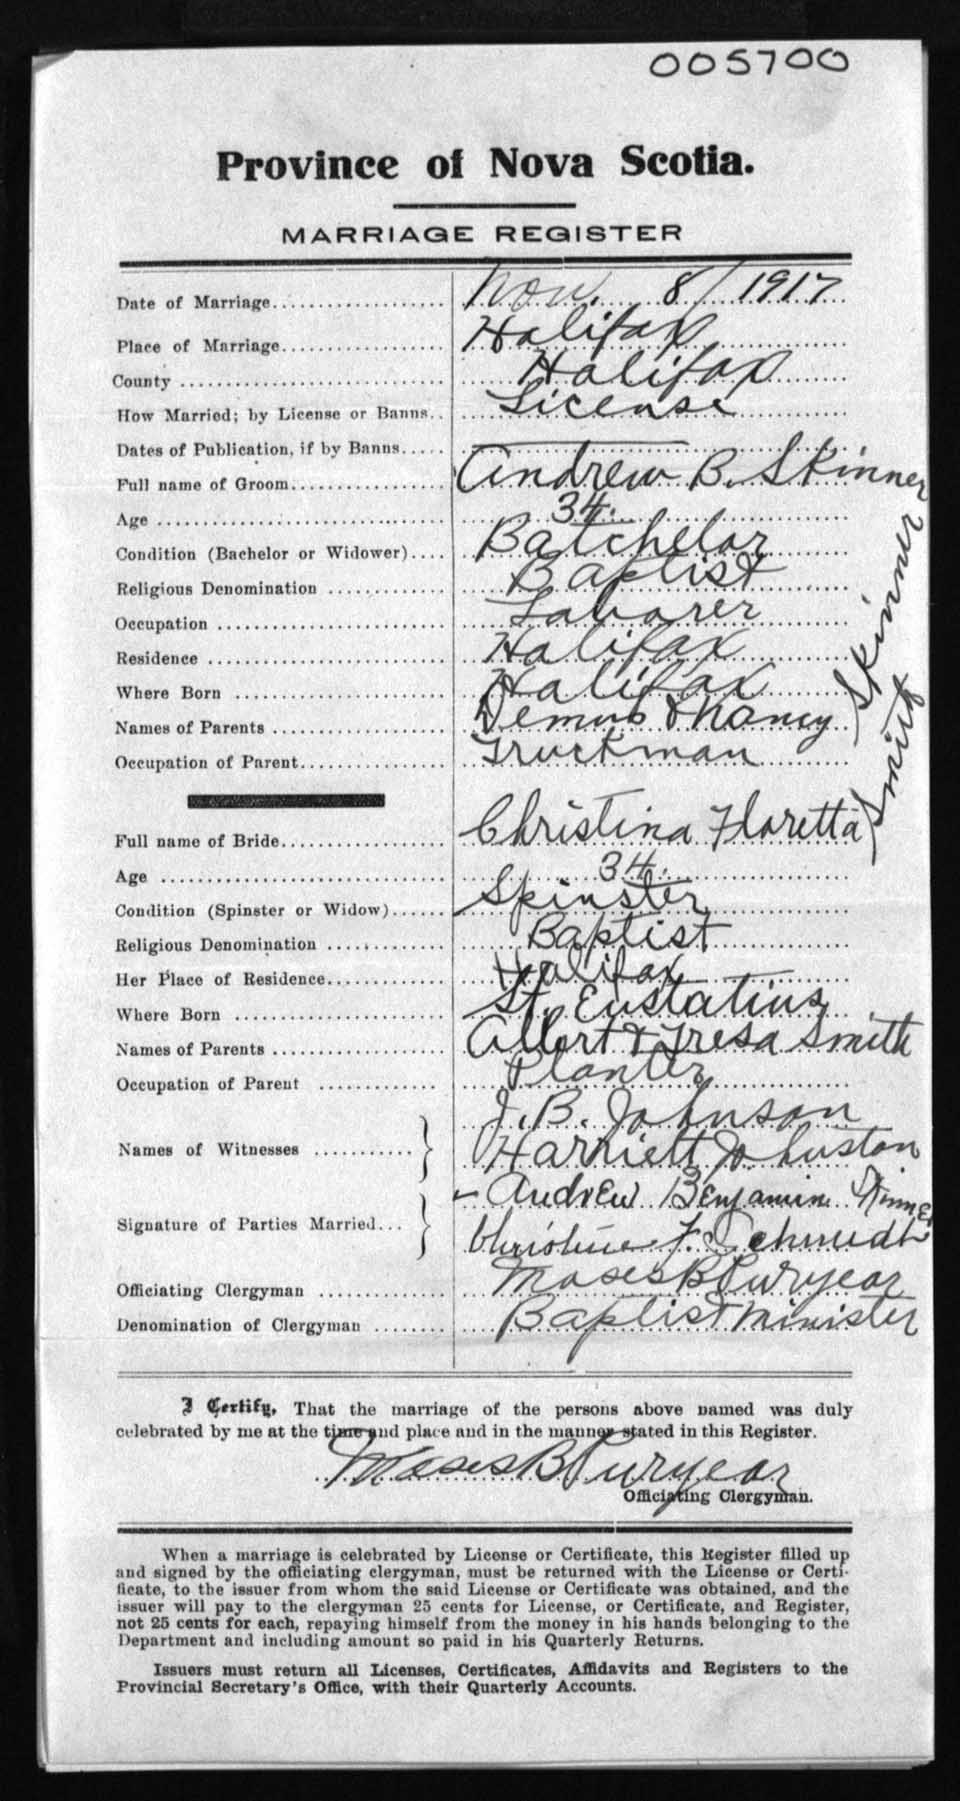 005700
Province of Nova Scotia.
MARRIAGE REGISTER
Date of Marriage Nov. 8 / 1917
Place of Marriage Halifax
County Halifax
How Married; by License or Banns License
Dates of Publication, if by Banns
Full name of Groom Andrew B. Skinner
Age 34
Condition (Bachelor or Widower) Batchelor
Religious Denomination Baptist
Occupation Laborer
Residence Halifax
Where Born Halifax
Names of Parents Demus & Nancy Skinner
Occupation of Parent Truckman
Full name of Bride Christina Floretta Smith
Age 34
Condition (Spinster or Widow) Spinster
Religious Denomination Baptist
Her Place of Residence Halifax
Where Born St. Eustatius
Names of Parents Albert & Tresa Smith
Occupation of Parent Planter
Names of Witnesses J. B. Johnson
Harriett Johnston
Signature of Parties Married Andrew Benjamin Skinner
Christine F. Schmidt
Officiating Clergyman Moses B Puryear
Denomination of Clergyman Baptist Minister
I Certify, That the marriage of the persons above named was duly
celebrated by me at the time and place and in the manner stated in this Register.
Moses B Puryear
Officiating Clergyman.
When a marriage is celebrated by License or Certificate, this Register filled up
and signed by the officiating clergyman, must be returned with the License or Certi-
ficate, to the issuer from whom the said License or Certificate was obtained, and the
issuer will pay to the clergyman 25 cents for License, or Certificate, and Register,
not 25 cents for each, repaying himself from the money in his hands belonging to the
Department and including amount so paid in his Quarterly Returns.
Issuers must return all Licenses, Certificates, Affidavits and Registers to the
Provincial Secretary's Office, with their Quarterly Accounts.